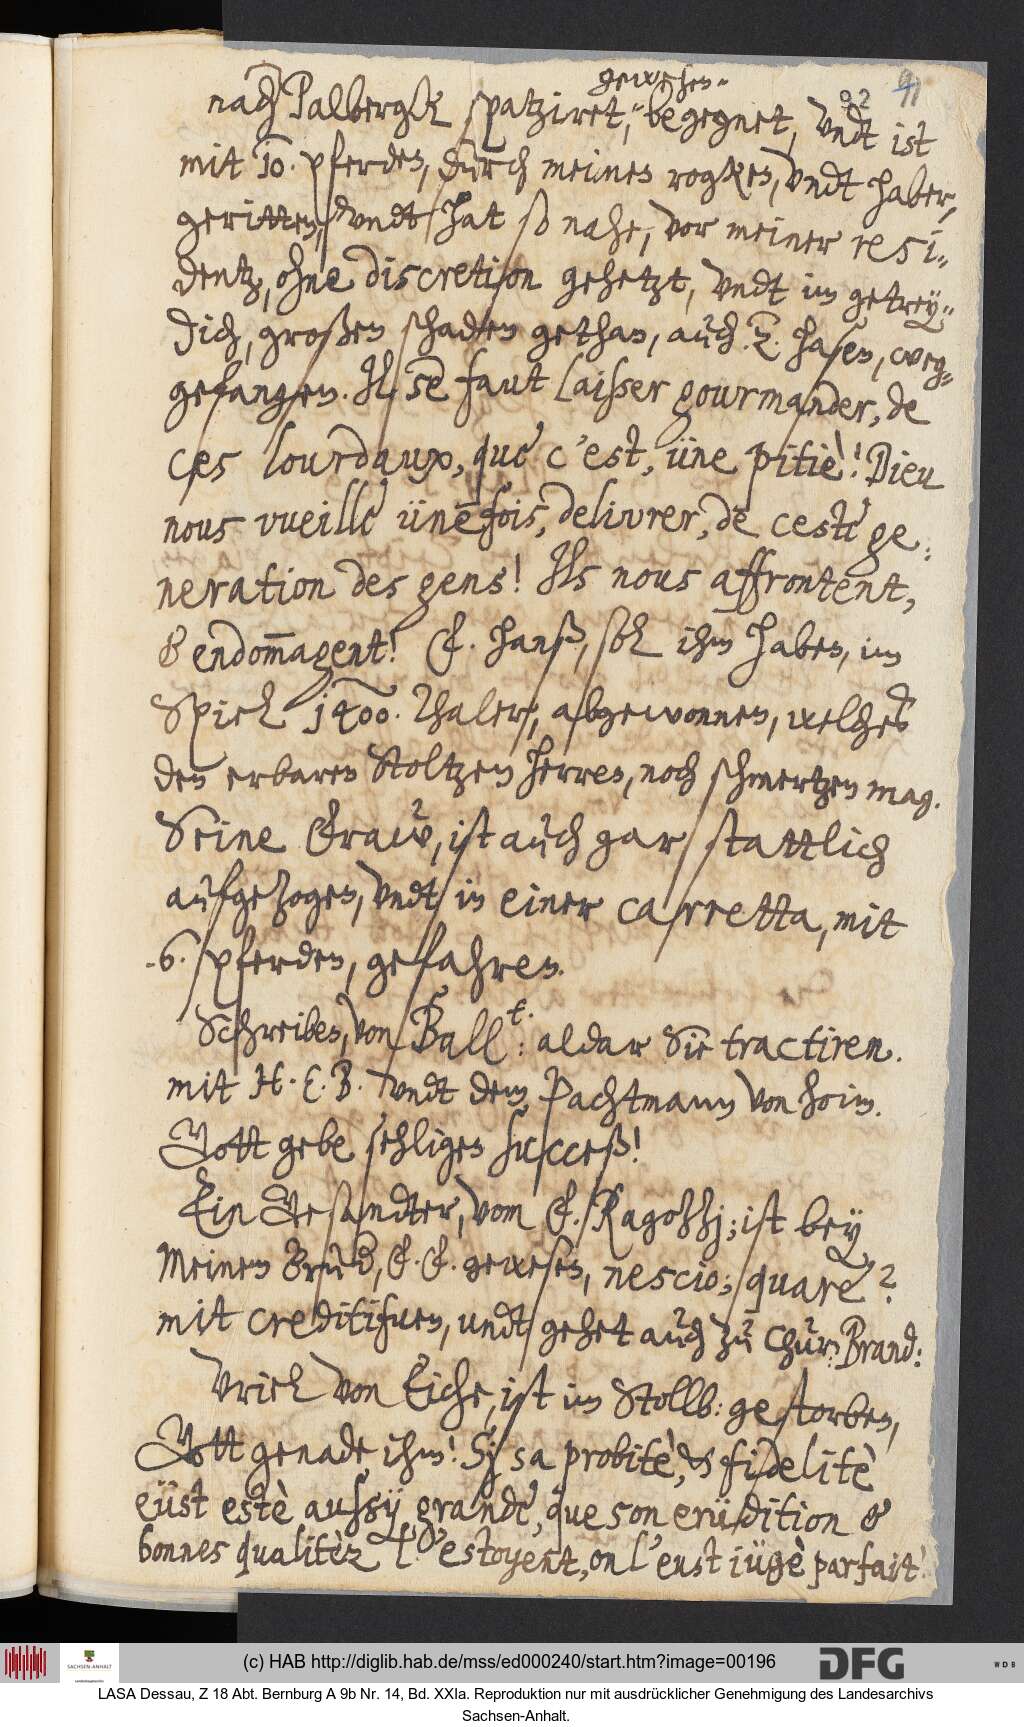 gewesen,,
92 91
nach Palbergk spatziret, begegnet, undt ist
mit 10. pferden, durch meinen rogken, undt haber,
geritten, undt hat so nahe, vor meiner resi„
dentz, ohne discretion gehetzt, undt im getrey„
dich, großen schaden gethan, auch .2. hasen, weg„
gefangen. Il se faut laisser gourmander, de
ces lourdaux, que c'est, üne pitiè! Dieu
nous vueille üne fois, delivrer, de ceste ge„
neration des gens! Ils nous affrontent,
& endom̅agent! F. Hanß, soll ihm haben, im
Spiel 1400. Thaler, abgewonnen, welches
den erbaren Stoltzen herren, noch schmertzen mag.
Seine Fraw, ist auch gar stattlich
aufgezogen, undt in einer carretta, mit
.6. pferden, gefahren.
Schreiben, von Ball:t. aldar Sie tractiren.
mit H. E. B. undt dem Pachtmann von hoim.
Gott gebe sehligen succeß!
Ein Gesandter, vom F. Ragozzj; ist bey
Meinem Brud, F. F. gewesen, nescio; quare?
mit creditifuen, undt gehet auch zu Chur: Brand:
Vriel von Eiche, ist im Stollb: gestorben,
Gott genade ihm! Sj sa probitè, & fidelitè
eüst estè aussy grande, que son erüdition &
bonnes qualitèz l'estoyent, on l'eust iügè parfait!
(c) HAB http://diglib.hab.de/mss/ed000240/start.htm?image=00196
SACHSEN-ANHALT
DFG
WDB
LASA Dessau, Z 18 Abt. Bernburg A 9b Nr. 14, Bd. XXIa. Reproduktion nur mit ausdrücklicher Genehmigung des Landesarchivs
Sachsen-Anhalt.